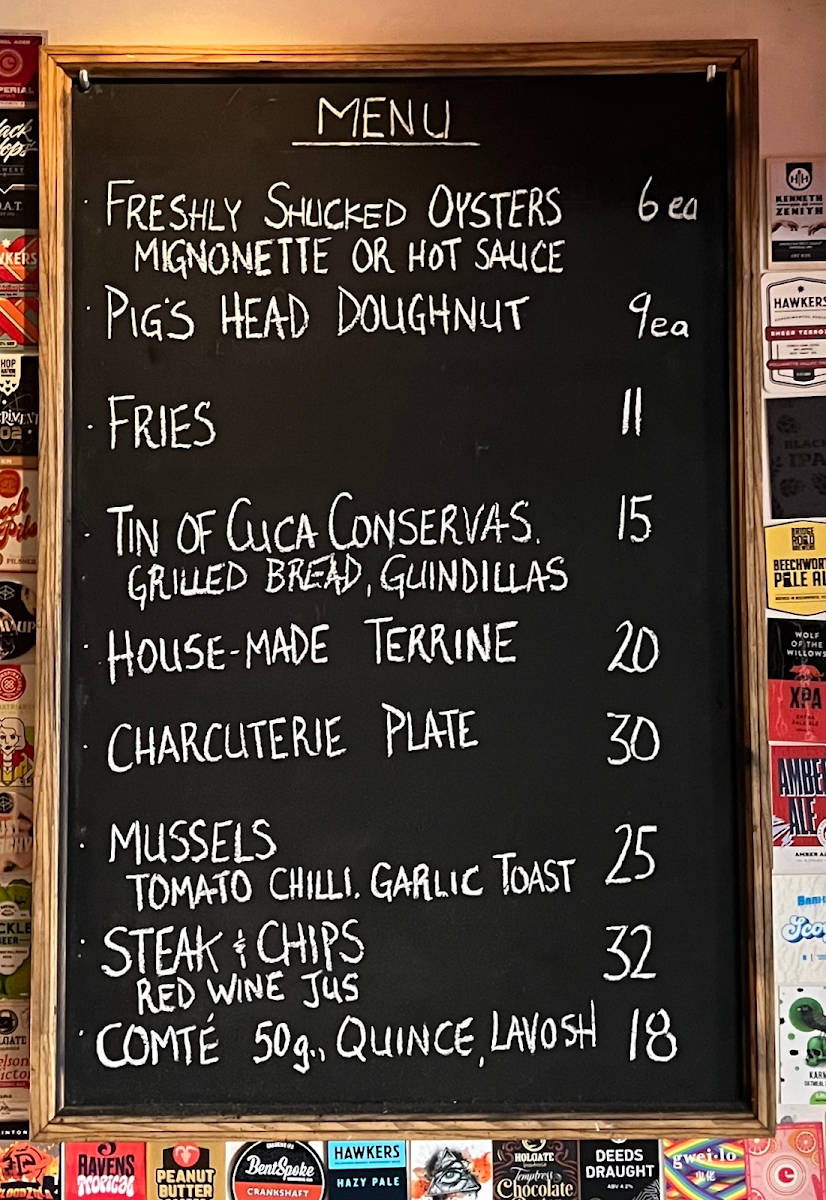 MENU
FRESHLY SHUCKED OYSTERS 6 ea
MIGNONETTE OR HOT SAUCE
PIG'S HEAD DOUGHNUT 9 ea
FRIES 11
TIN OF CUCA CONSERVAS. 15
GRILLED BREAD, GUINDILLAS
HOUSE-MADE TERRINE 20
CHARCUTERIE PLATE 30
MUSSELS 25
TOMATO CHILLI. GARLIC TOAST
STEAK & CHIPS 32
RED WINE JUS
COMTÉ 50g., QUINCE, LAVOSH 18
KENNETH
ZENITH
HAWKERS
BLACK
IPA
BRIDGE
ROAD
BREWERS
BEECHWORTH
PALE AL
WOLF
OF THE
WILLOWS
XPA
AMBE
ALE
AMBER AL
RAVENS
TROPICAL
PEANUT
BUTTER
BentSpoke
CRANKSHAFT
HAWKERS
HAZY PALE
HOLGATE
Temptress
Chocolate
DEEDS
DRAUGHT
gwei.lo